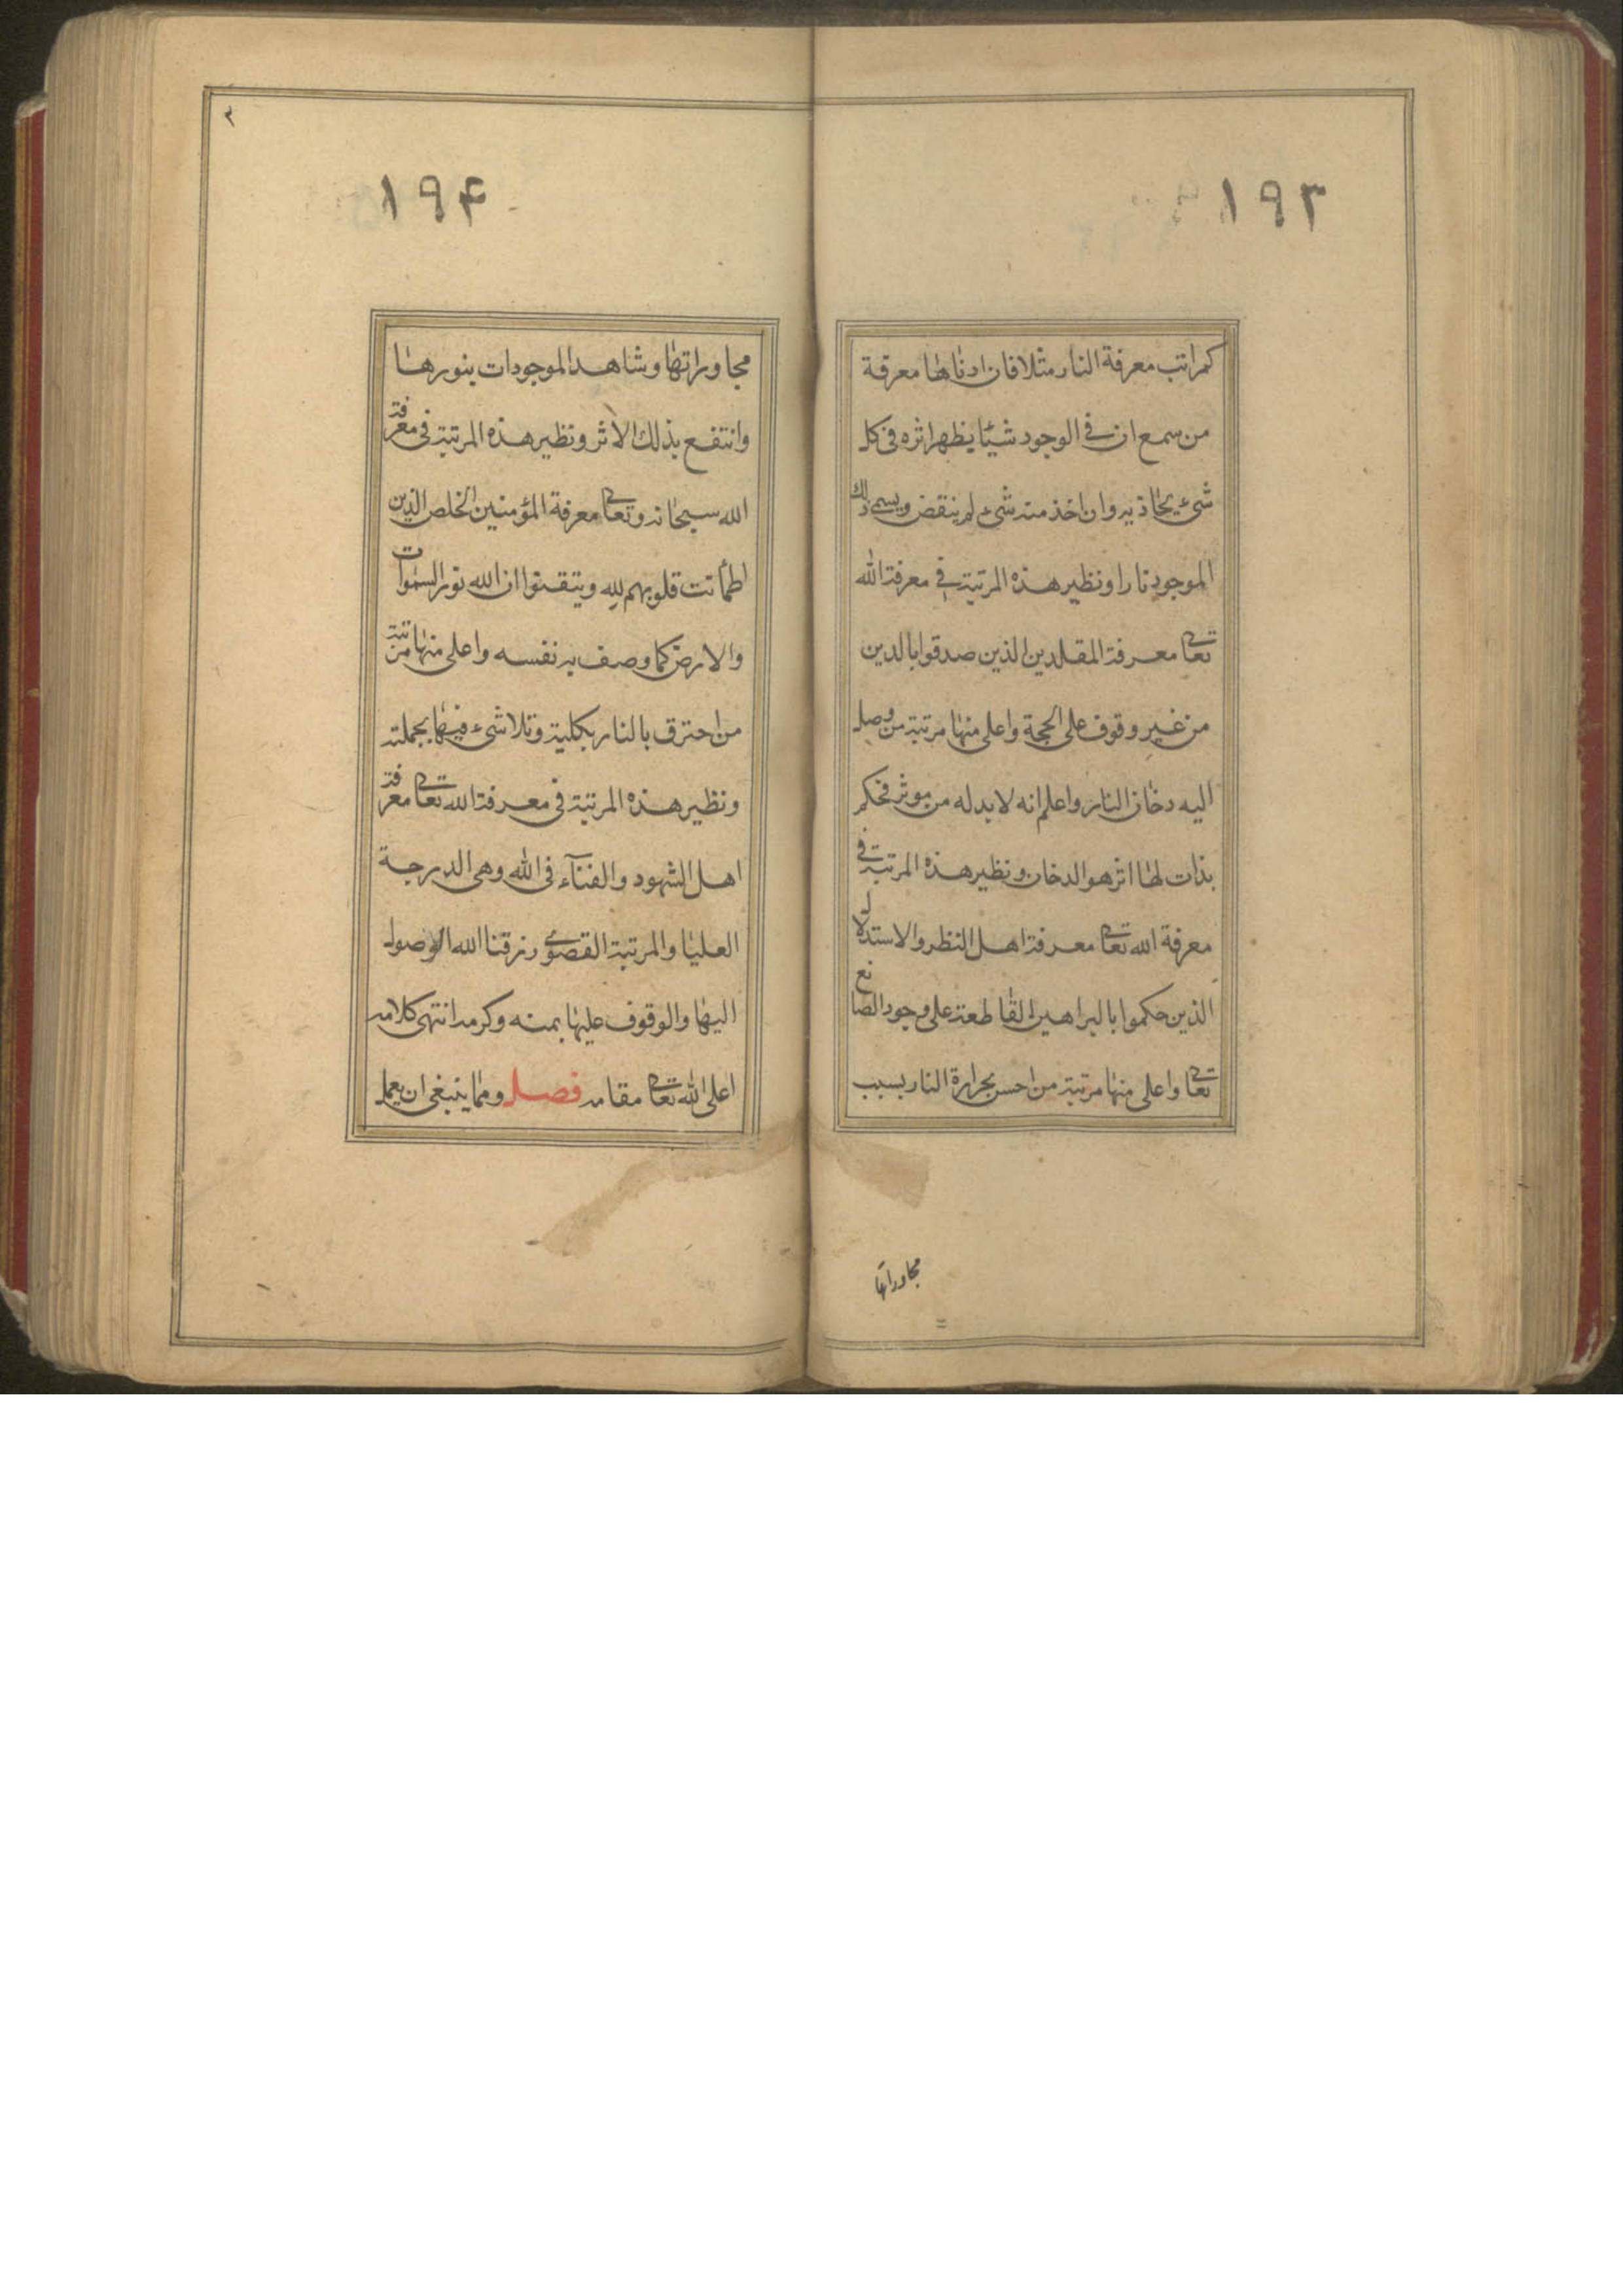 ١٩٣
كمراتب معرفة النار مثلا فان ادناها معرفة
من سمع ان فى الوجود شيئا يظهر اثره فى كل
شىء يحاذيه وان اخذ منه شىء لم ينقض ويسمى ذلك
الموجود نارا ونظير هذه المرتبة فى معرفة الله
تعالى معرفة المقلدين الذين صدقوا بالدين
من غير وقوف على الحجة واعلى منها مرتبة من وصل
اليه دخان النار واعلم انه لا بد له من موثر فحكم
بذات لها اثر هو الدخان ونظير هذه المرتبة فى
معرفة الله تعالى معرفة اهل النظر والاستدلال
الذين حكموا بالبراهين القاطعة على وجود الصانع
تعالى واعلى منها مرتبة من احسن بحرارة النار بسبب
مجاوراتها
٣
١٩۴
مجاوراتها وشاهد الموجودات بنورها
وانتفع بذلك الاثر ونظير هذه المرتبة فى معرفة
الله سبحانه وتعالى معرفة المؤمنين الخلص الذين
اطمأنت قلوبهم لله ويتقنوا ان الله نور السموات
والارض كما وصف به نفسه واعلى منها مرتبة
من احترق بالنار بكليته وتلاشىء فيها بجملته
ونظير هذه المرتبة فى معرفة الله تعالى معرفة
اهل الشهود والفنآء فى الله وهى الدرجة
العليا والمرتبة القصوى رزقنا الله الوصول
اليها والوقوف عليها بمنه وكرمه انتهى كلامه
اعلى الله تعالى مقامه فصل ومما ينبغى ان يعمل